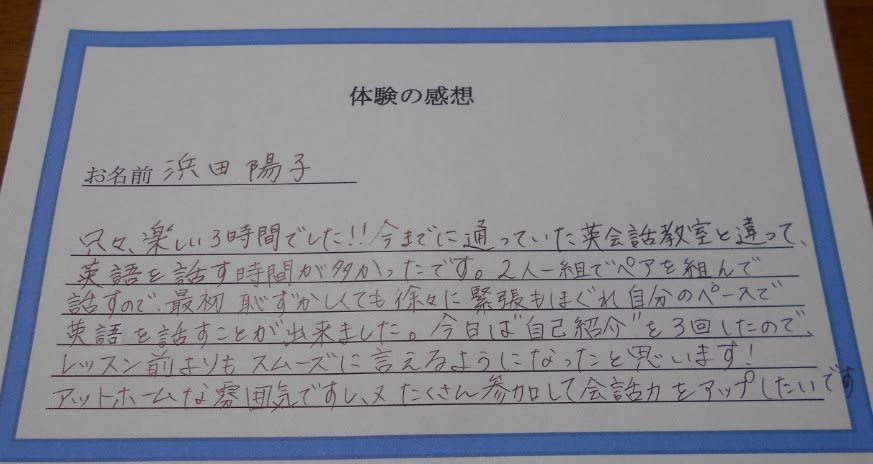 体験の感想
お名前 浜田陽子
只々、楽しい3時間でした!!今までに通っていた英会話教室と違って、
英語を話す時間が多かったです。2人一組でペアを組んで
話すので、最初 恥ずかしくても徐々に緊張もほぐれ自分のペースで
英語を話すことが出来ました。今日は"自己紹介"を3回したので、
レッスン前よりもスムーズに言えるようになったと思います!
アットホームな雰囲気ですし、又たくさん参加して会話力をアップしたいです